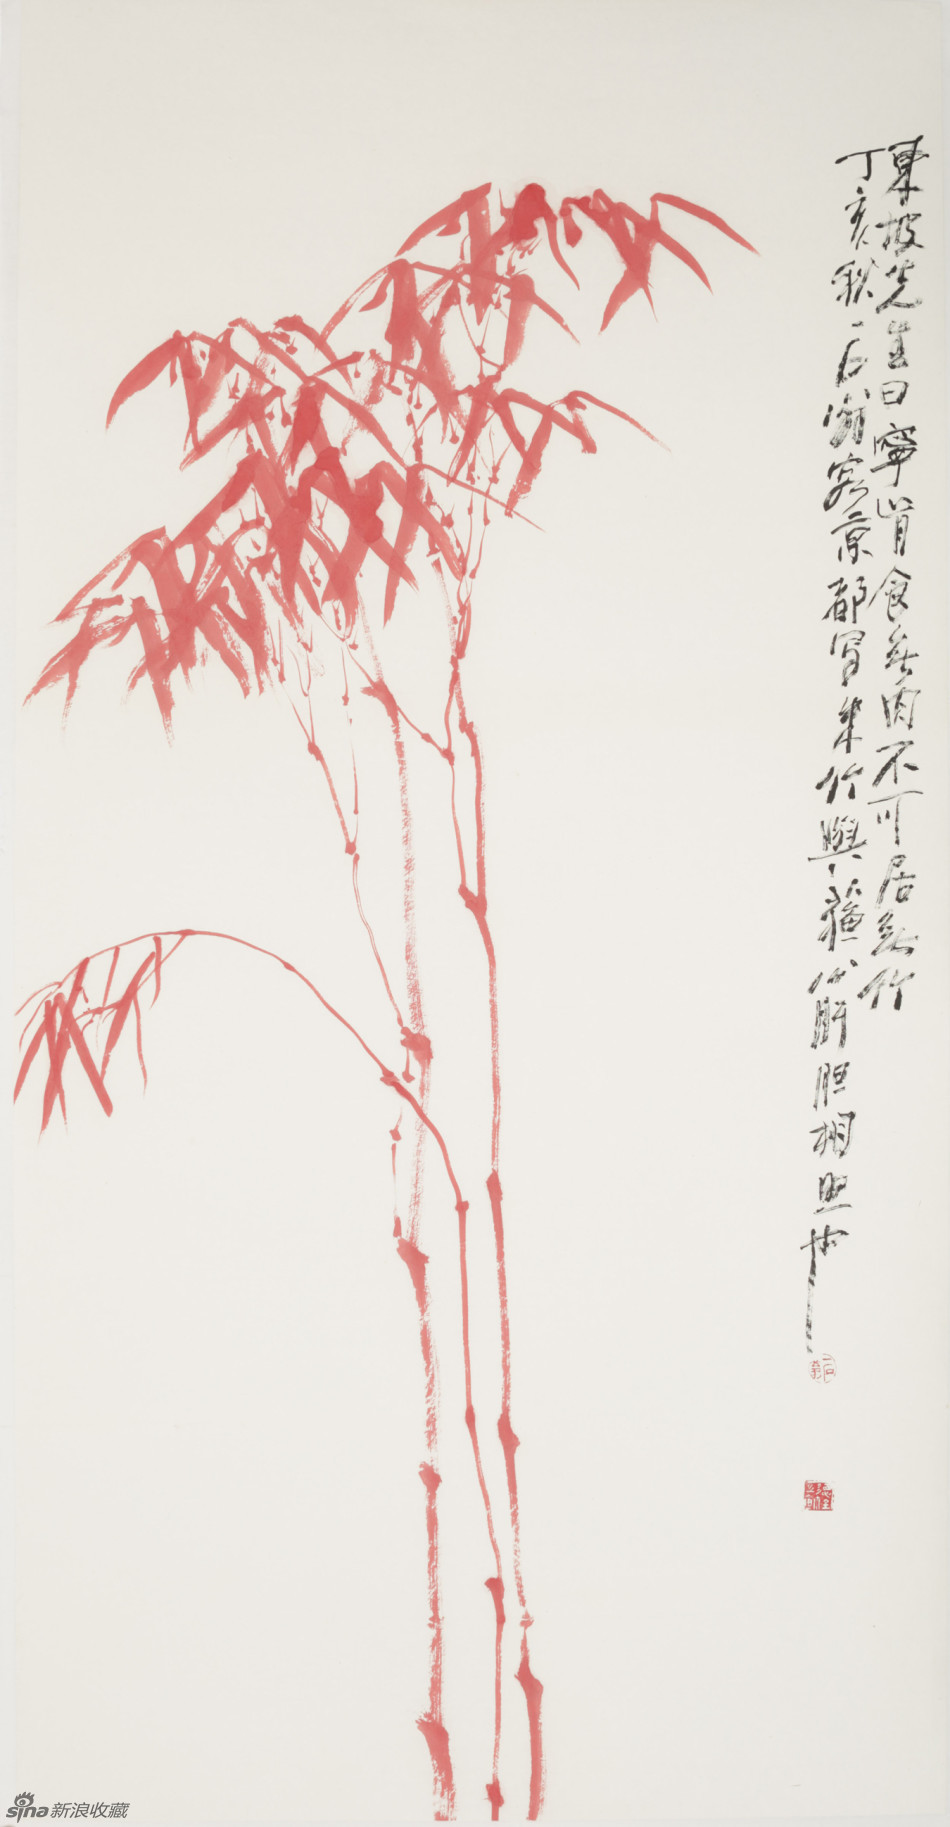 東坡先生曰寧肯食無肉不可居無竹
丁亥秋石翁客京都写朱竹與蘇公肝胆相照也
sina新浪收藏